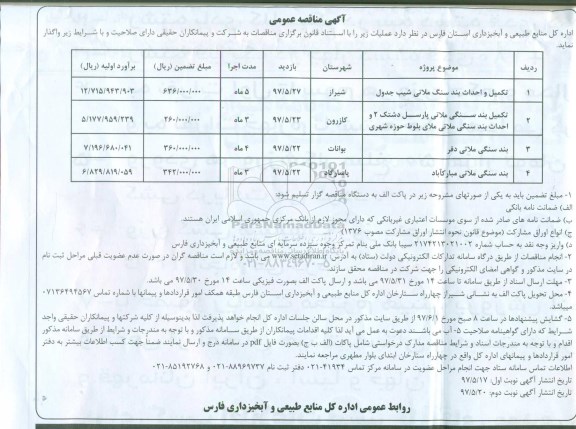 آگهی مناقصه عمومی
اداره کل منابع طبیعی و آبخیزداری استان فارس در نظر دارد عملیات زیر را با استناد قانون برگزاری مناقصات به شرکت و پیمانکاران حقیقی دارای صلاحیت و با شرایط زیر واگذار
نماید.
ردیف موضوع پروژه شهرستان بازدید مدت اجرا مبلغ تضمین (ریال) برآورد اولیه (ریال)
۱ تکمیل و احداث بند سنگ ملاتی شیب جدول شیراز ۹۷/۵/۲۷ ۵ ماه ۶۳۶/۰۰۰/۰۰۰ ۱۲/۷۱۵/۹۴۳/۹۰۳
۲ تکمیل بند سنگی ملاتی پارسل دشتک ۲ و
احداث بند سنگی ملاتی ملای بلوط حوزه شهری کازرون ۹۷/۵/۲۳ ۳ ماه ۲۶۰/۰۰۰/۰۰۰ ۵/۱۷۷/۹۵۹/۲۳۹
۳ بند سنگی ملاتی دفر بوانات ۹۷/۵/۲۲ ۴ ماه ۳۶۰/۰۰۰/۰۰۰ ۷/۱۹۶/۶۸۰/۰۴۱
۴ بند سنگی ملاتی مبارکآباد پاسارگاد ۹۷/۵/۲۲ ۳ ماه ۳۴۲/۰۰۰/۰۰۰ ۶/۸۲۹/۸۱۹/۰۵۹
۱- مبلغ تضمین باید به یکی از صورتهای مشروحه زیر در پاکت الف به دستگاه مناقصه گزار تسلیم شود:
الف) ضمانت نامه بانکی
ب) ضمانت نامه های صادر شده از سوی موسسات اعتباری غیربانکی که دارای مجوز لازم از بانک مرکزی جمهوری اسلامی ایران هستند.
ج) انواع اوراق مشارکت (موضوع قانون نحوه انتشار اوراق مشارکت مصوب ۱۳۷۶)
د) واریز وجه نقد به حساب شماره ۲۱۷۴۲۱۳۰۲۱۰۰۲ سیبا بانک ملی بنام تمرکز وجوه سپرده سرمایه ای منابع طبیعی و آبخیزداری فارس
۲- انجام مناقصات از طریق درگاه سامانه تدارکات الکترونیکی دولت (ستاد) به آدرس www.setadiran.ir می باشد و لازم است مناقصه گران در صورت عدم عضویت قبلی مراحل ثبت نام
در سایت مذکور و گواهی امضای الکترونیکی را جهت شرکت در مناقصه محقق سازند.
۳- مهلت ارسال اسناد از طریق سامانه تا ساعت ۱۴ مورخ ۹۷/۵/۳۱ می باشد و ارسال پاکت الف بصورت فیزیکی ساعت ۱۴ مورخ ۹۷/۵/۳۰ می باشد.
۴- محل تحویل پاکت الف به نشانی شیراز چهارراه ستارخان اداره کل منابع طبیعی و آبخیزداری استان فارس طبقه همکف امور قراردادها و پیمانها با شماره تماس ۰۷۱۳۶۴۹۲۵۶۷
میباشد.
۵- گشایش پیشنهادها در ساعت ۸ صبح مورخ ۹۷/۶/۱ از طریق سایت مذکور در محل سالن جلسات اداره کل انجام خواهد پذیرفت لذا بدینوسیله از کلیه شرکتها و پیمانکاران حقیقی واجد
شرایط که دارای گواهینامه صلاحیت ۵-آب می باشند دعوت به عمل می آید لذا کلیه اقدامات پیمانکاران از طریق سامانه مذکور و با توجه به مندرجات و شرایط از طریق سامانه مذکور
اقدام و با توجه به مندرجات اسناد و شرایط مناقصه مدارک درخواستی شامل پاکات (الف ب ج) بصورت فایل pdf در سامانه درج و ارسال نمایند ضمناً جهت کسب اطلاعات بیشتر به دفتر
امور قراردادها و پیمانهای اداره کل واقع در چهارراه ستارخان ابتدای بلوار مطهری مراجعه نمایند.
اطلاعات تماس سامانه ستاد جهت انجام مراحل عضویت در سامانه مرکز تماس ۴۱۹۳۴-۰۲۱ دفتر ثبت نام ۸۸۹۶۹۷۳۷-۰۲۱ و ۸۵۱۹۳۷۶۸-۰۲۱
تاریخ انتشار آگهی نوبت اول: ۹۷/۵/۱۷
تاریخ انتشار آگهی نوبت دوم: ۹۷/۵/۲۰
روابط عمومی اداره کل منابع طبیعی و آبخیزداری فارس